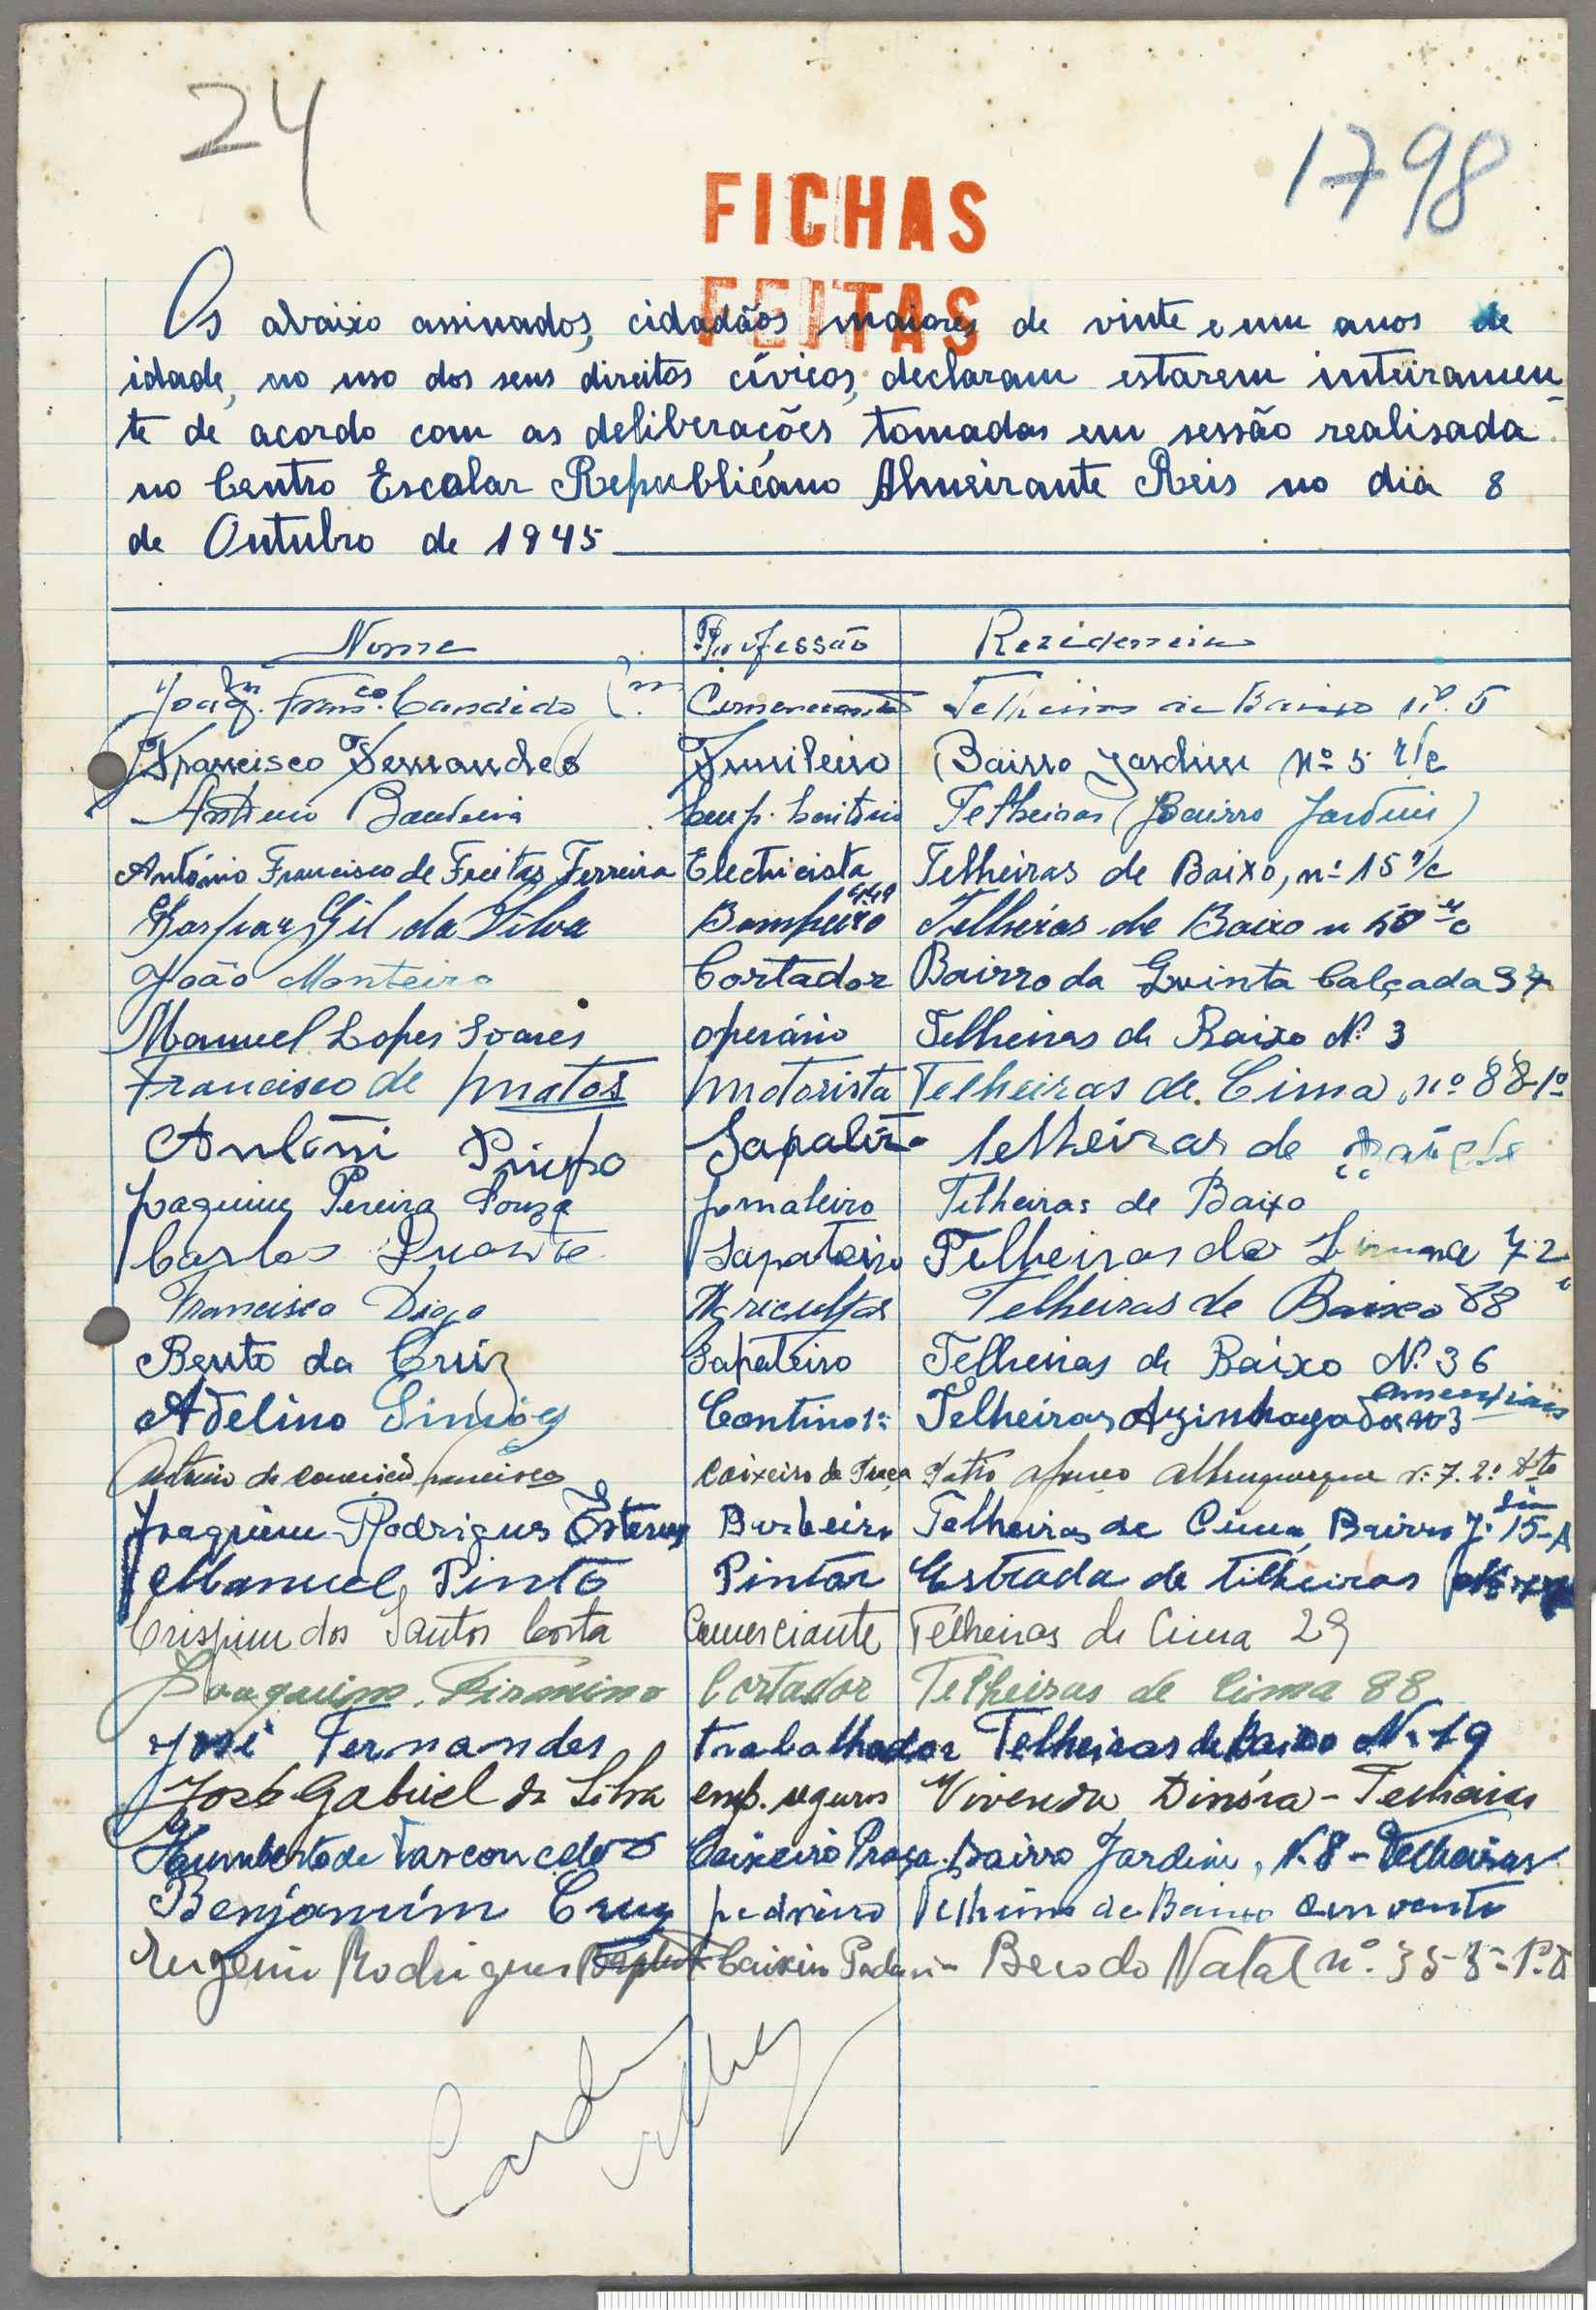 24
1798
FICHAS
FEITAS
Os abaixo assinados, cidadãos maiores de vinte e um anos de
idade, no uso dos seus direitos cívicos, declaram estarem inteiramen-
te de acordo com as deliberações tomadas em sessão realisada
no Centro Escolar Republicano Almeirante Reis no dia 8
de Outubro de 1945
Nome Professão Rezidencia
Joaqm. Franco. Candido Comerciante Telheiras de Baixo nº. 5
Francisco Fernandes Funileiro Bairro Jardim nº 5 r/c
António Bandeira Emp. Telheiras (Bairro Jardim)
António Francisco de Freitas Ferreira Electricista Telheiras de Baixo, nº 15 r/c
Gaspar Gil da Silva Bombeiro Telheiras de Baixo n
João Monteiro Cortador Bairro da Quinta Calçada 37
Manuel Lopes Soares operário Telheiras de Baixo Nº 3
Francisco de Matos Motorista Telheiras de Cima, nº 88-1º
António Sapateiro telheiras de
Joaquim Pereira Souza Jornaleiro Telheiras de Baixo
Carlos Duarte Sapateiro Telheiras de 72
Francisco Diogo Agricultor Telheiras de Baixo 88
Bento da Cruz Sapateiro Telheiras de Baixo Nº 36
Adelino Simões Contino 1ª Telheiras Azinhaga das nº 3
António da Conceição Francisco Caixeiro de Praça Patio Afonso Albuquerque nº 7. 2º Dto
Joaquim Rodrigues Esteves Barbeiro Telheiras de Cima, Bairro J. dim 15-A
Manuel Pinto Pintor Estrada de Telheiras
Crispim dos Santos Costa Comerciante Telheiras de Cima 29
Joaquim Firmino Cortador Telheiras de Cima 88
José Fernandes trabalhador Telheiras de Baixo Nº 19
José Gabriel da Silva emp. seguros Vivenda Dinóra - Telheiras
Humberto de Vasconcelos Caixeiro Praça Bairro Jardim, N. 8 - Telheiras
Benjamim Cruz pedreiro Telheiras de Baixo Convento
Eugenio Rodrigues Caixeiro Padaria Beco do Natal nº. 35-3º